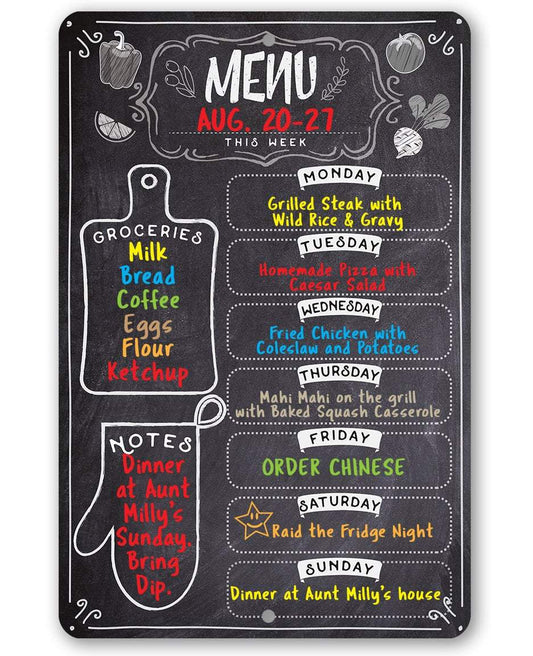 MENU
AUG. 20-27
THIS WEEK
GROCERIES
Milk
Bread
Coffee
Eggs
Flour
Ketchup
NOTES
Dinner
at Aunt
Milly's
Sunday.
Bring
Dip.
MONDAY
Grilled Steak with
Wild Rice & Gravy
TUESDAY
Homemade Pizza with
Caesar Salad
WEDNESDAY
Fried Chicken with
Coleslaw and Potatoes
THURSDAY
Mahi Mahi on the grill
with Baked Squash Casserole
FRIDAY
ORDER CHINESE
SATURDAY
Raid the Fridge Night
SUNDAY
Dinner at Aunt Milly's house